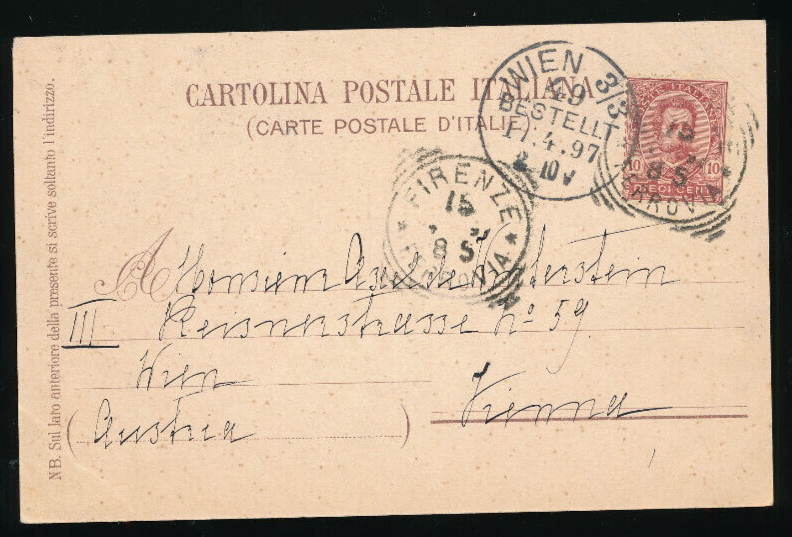 CARTOLINA POSTALE ITALIANA
(CARTE POSTALE D'ITALIE)
WIEN 3/3
49
BESTELLT
17.4.97
10 V
10 10
DIECI CENT
15
8 S
FERROVIA
* FIRENZE *
15
8 S
FERROVIA
A Monsieur
III Reisnerstrasse no 59
Wien
Vienna
(Austria)
NB. Sul lato anteriore della presente si scrive soltanto l'indirizzo.